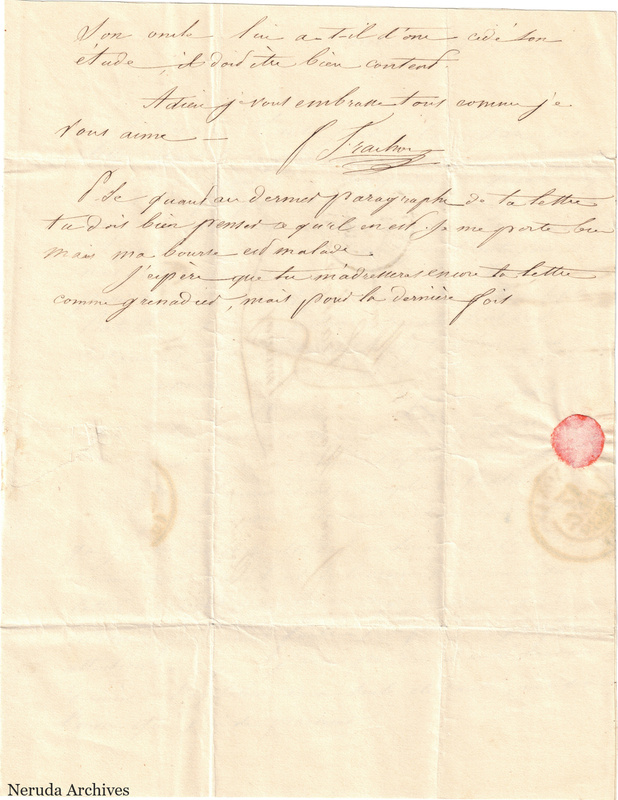 Son oncle lui a-t-il donc cédé son
étude, il doit être bien content.
Adieu je vous embrasse tous comme je
vous aime —
P.Se quant au dernier paragraphe de ta lettre
tu dois bien penser ce qu'il en est. Je me porte bien
mais ma bourse est malade.
J'espère que tu m'adresseras encore ta lettre
comme grenadier, mais pour la dernière fois
Neruda Archives